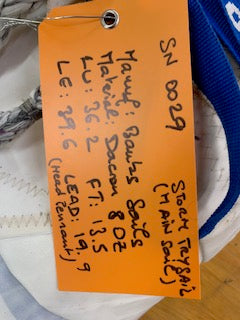 SN 0029
STORM TRYSAIL
(MAIN SAIL)
Manuf: Banks Sails
Material: Dacron 8 OZ
LU: 36.2 FT: 13.5
LE: 39.6 LEAD: 19.9
(Head Pennant)